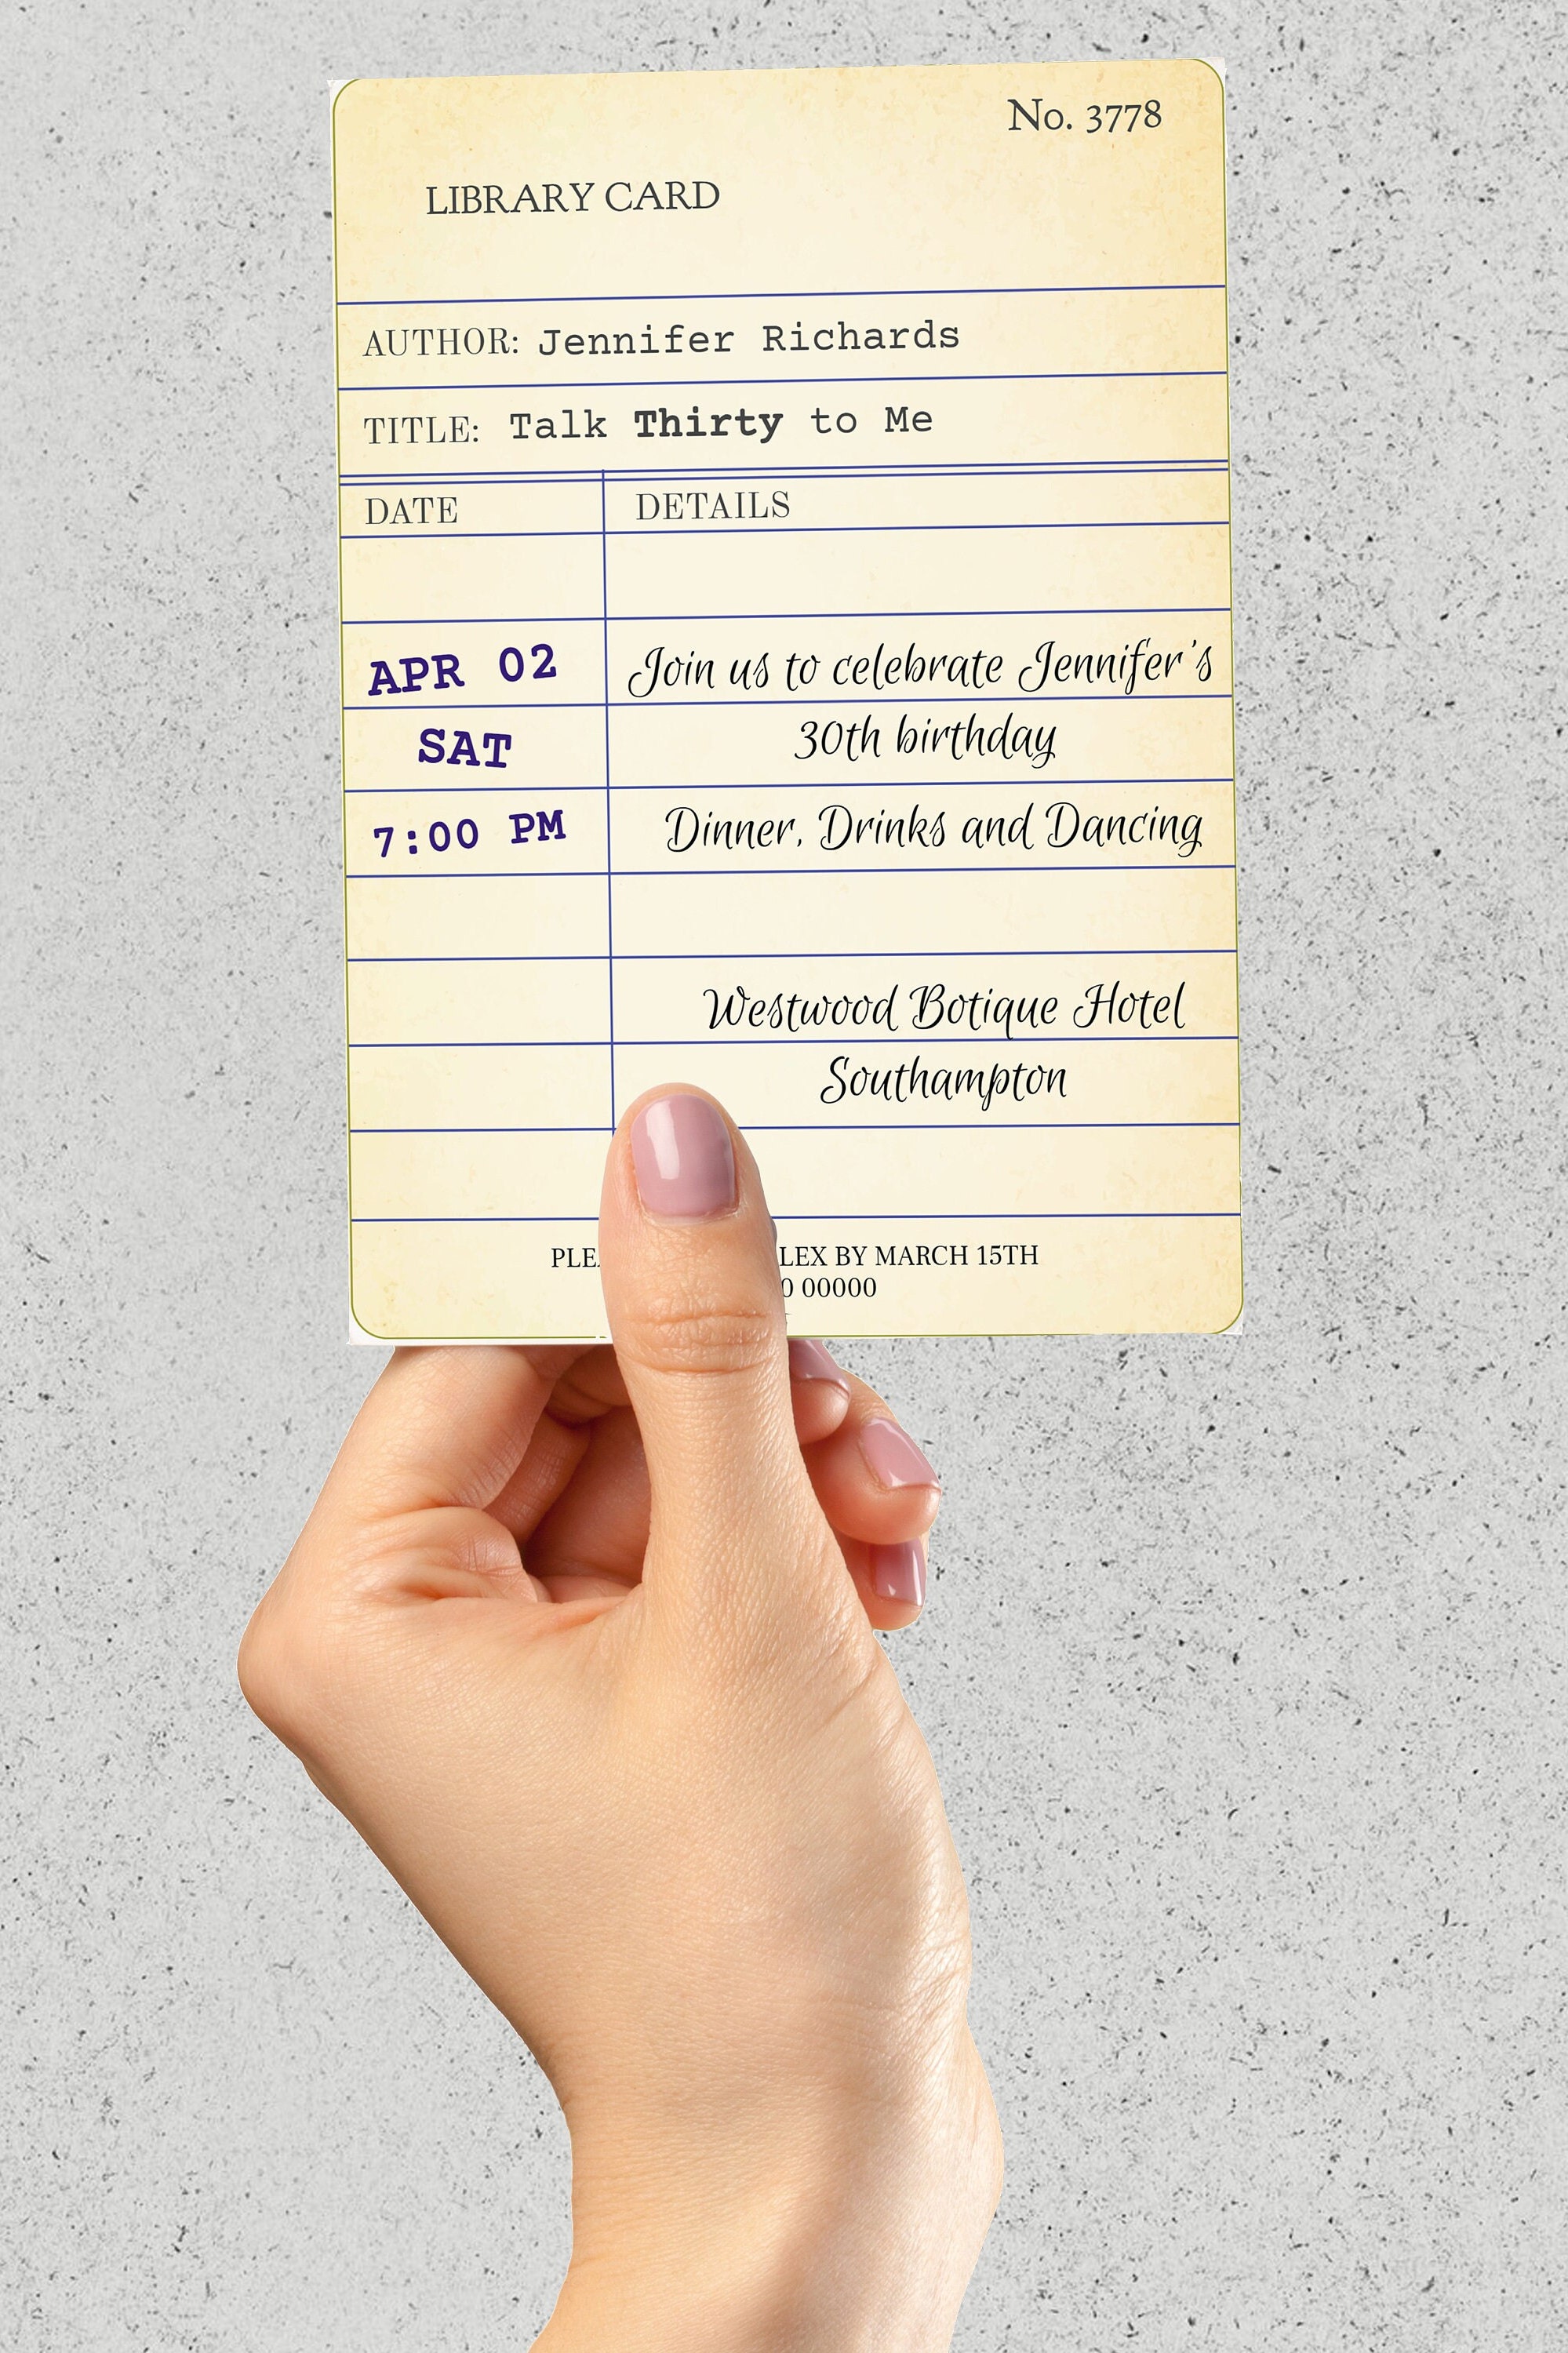 No. 3778
LIBRARY CARD
AUTHOR: Jennifer Richards
TITLE: Talk Thirty to Me
DATE DETAILS
APR 02 Join us to celebrate Jennifer's
SAT 30th birthday
7:00 PM Dinner, Drinks and Dancing
Westwood Botique Hotel
Southampton
BY MARCH 15TH
00000